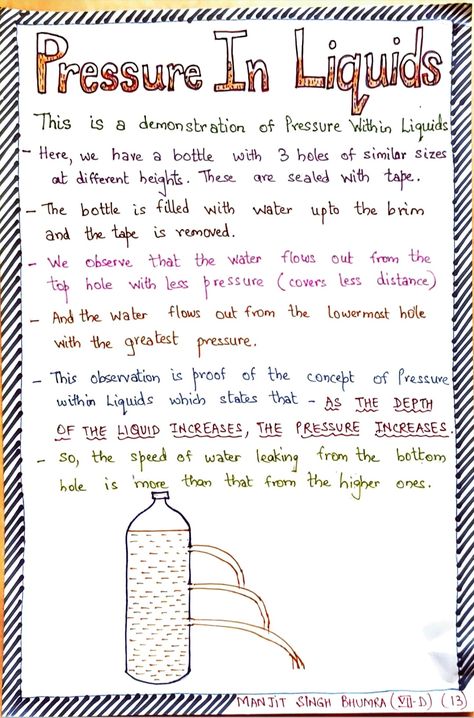 Pressure In Liquids
This is a demonstration of Pressure Within Liquids
- Here, we have a bottle with 3 holes of similar sizes
at different heights. These are sealed with tape.
- The bottle is filled with water upto the brim
and the tape is removed.
- We observe that the water flows out from the
top hole with less pressure (covers less distance)
- And the water flows out from the lowermost hole
with the greatest pressure.
- This observation is proof of the concept of Pressure
within Liquids which states that - AS THE DEPTH
OF THE LIQUID INCREASES, THE PRESSURE INCREASES.
- So, the speed of water leaking from the bottom
hole is more than that from the higher ones.
MANJIT SINGH BHUMRA (VII-D) (13)